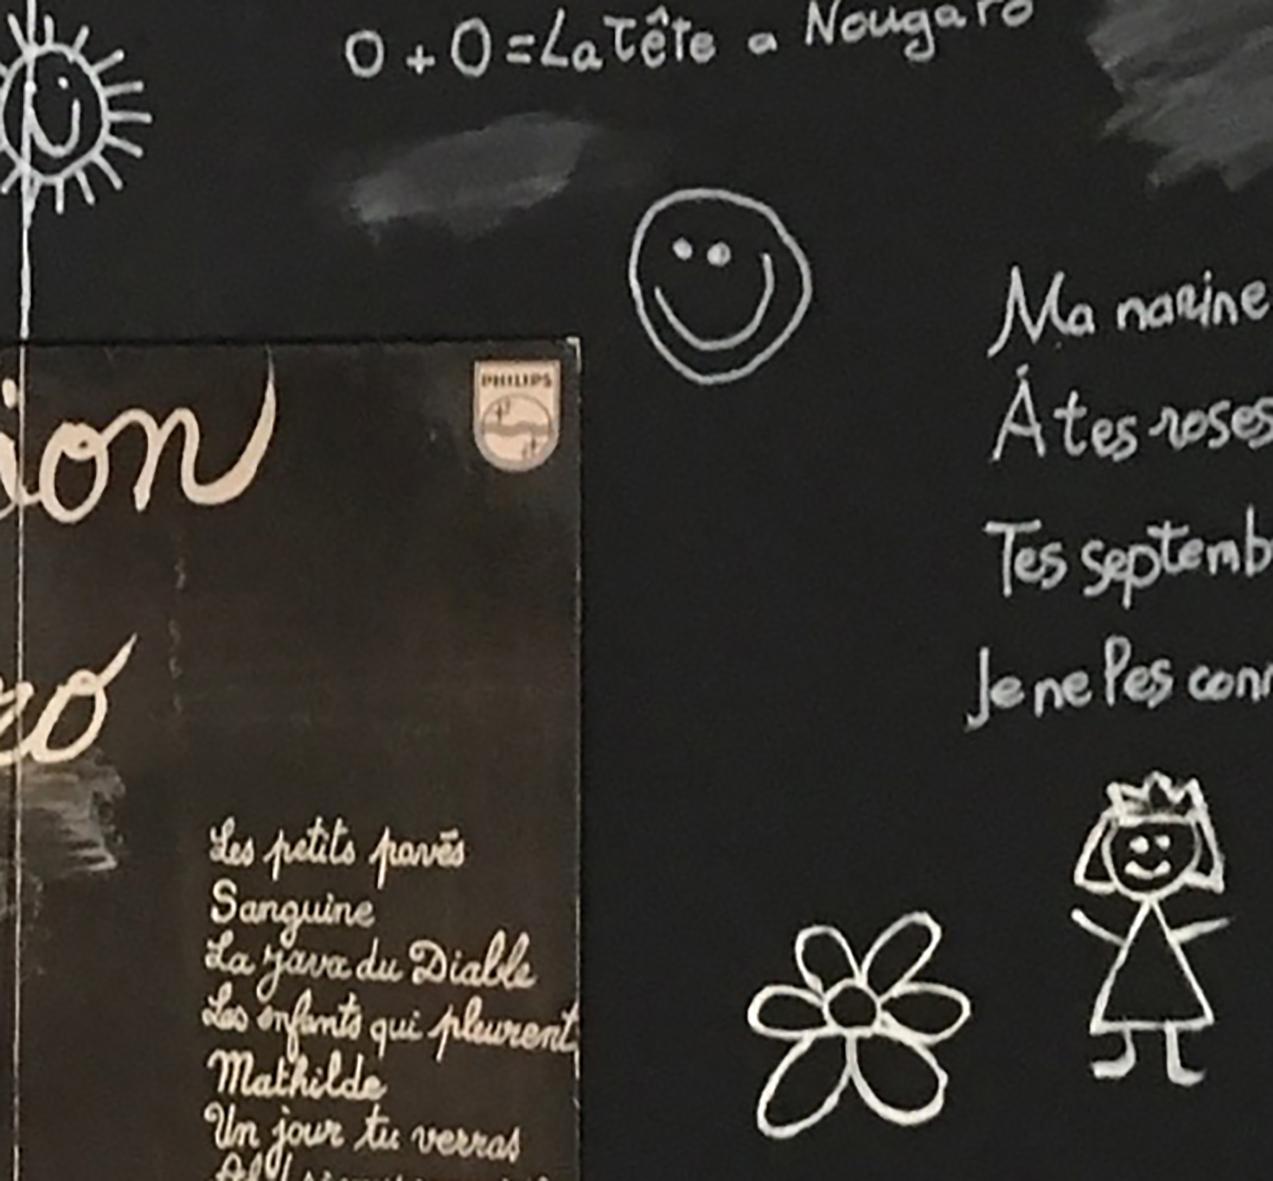 0 + 0 = La Tête a Nougaro
Ma narine
À tes roses
Tes septemb
Je ne les conn
ion
PHILIPS
ro
Les petits pavés
Sanguine
La java du Diable
Les enfants qui pleurent
Mathilde
Un jour tu verras